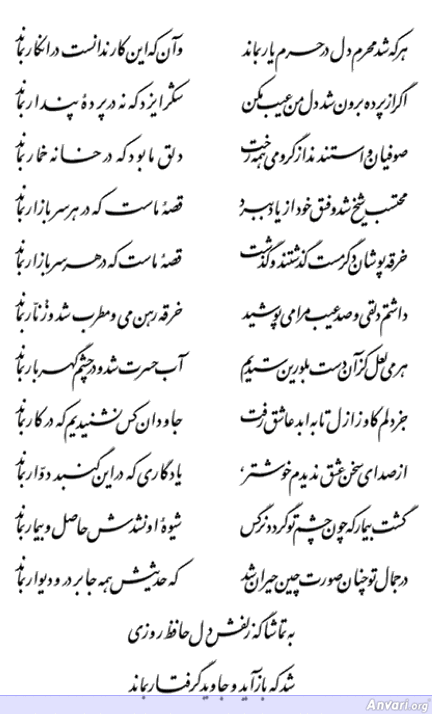 هر که شد محرم دل در حرم یار بماند وآن که این کار ندانست در انکار بماند
اگر از پرده برون شد دل من عیب مکن شکر ایزد که نه در پردهٔ پندار بماند
صوفیان واستدند از گرو می همه رخت دلق ما بود که در خانه خمار بماند
محتسب شیخ شد و فسق خود از یاد ببرد قصهٔ ماست که در هر سر بازار بماند
خرقه پوشان دگر مست گذشتند و گذشت قصهٔ ماست که در هر سر بازار بماند
داشتم دلقی و صد عیب مرا می پوشید خرقه رهن می و مطرب شد و زنّار بماند
هر می لعل کز آن دست بلورین ستدیم آب حسرت شد و در چشم گهر بار بماند
جز دلم کاو ز ازل تا به ابد عاشق رفت جاودان کس نشنیدیم که در کار بماند
از صدای سخن عشق ندیدم خوشتر، یادگاری که در این گنبد دوّار بماند
گشت بیمار که چون چشم تو گردد نرگس شیوهٔ او نشدش حاصل و بیمار بماند
در جمال تو چنان صورت چین حیران شد که حدیثش همه جا بر در و دیوار بماند
به تماشاگه زلفش دل حافظ روزی
شد که باز آید و جاوید گرفتار بماند
Anvari.org